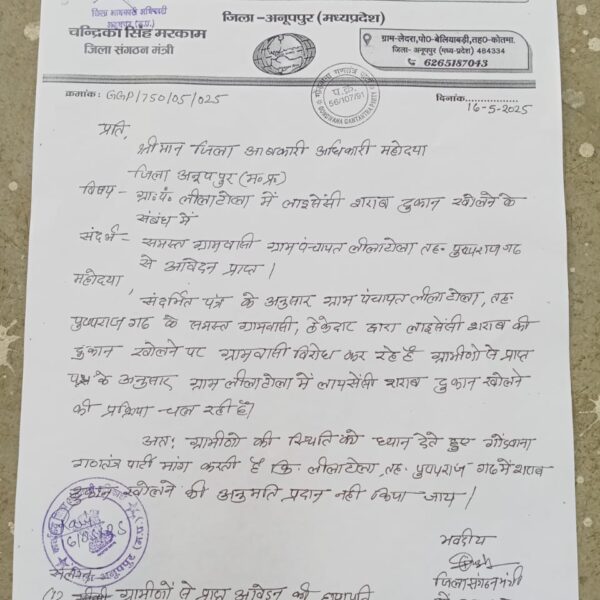 जिला -अनूपपुर (मध्यप्रदेश)
अनूपपुर (म.प्र.)
चन्द्रिका सिंह मरकाम
जिला संगठन मंत्री
ग्राम-लेदरा,पो0-बेलियाबड़ी,तह0-कोतमा.
जिला- अनूपपुर (मध्य-प्रदेश) 484334
6265187043
क्रमांक: GGP/750/05/025
प.क्र.
56/107/91
GONDWANA GANTANTRA PARTY
दिनांक..................
16-5-2025
प्रति,
श्रीमान जिला आबकारी अधिकारी महोदया
जिला अनूपपुर (म०प्र०)
विषय - ग्रा०पं० लीलाटोला में लाइसेंसी शराब दुकान खोलने के
संबंध में
संदर्भ - समस्त ग्रामवासी ग्राम पंचायत लीलाटोला तह- पुष्पराजगढ
से आवेदन प्राप्त।
महोदया,
संदर्भित पत्र के अनुसार ग्राम पंचायत लीलाटोला, तह-
पुष्पराज गढ के समस्त ग्रामवासी, ठेकेदार द्वारा लाइसेंसी शराब की
दुकान खोलने पर ग्रामवासी विरोध कर रहे हैं ग्रामीणो से प्राप्त
पत्र के अनुसार ग्राम लीलाटोला में लायसेंसी शराब दुकान खोलने
की प्रक्रिया चल रही है।
अतः ग्रामीणो की स्थिति को ध्यान देते हुए गोंडवाना
गणतंत्र पार्टी मांग करती है कि लीलाटोला तह- पुष्पराज गढ में शराब
दुकान खोलने की अनुमति प्रदान नही किया जाय।
भवदीय
अनूपपुर (म.प्र.)
जिला संगठन मंत्री
ग्रामीणों से प्राप्त आवेदन की छायाप्रति